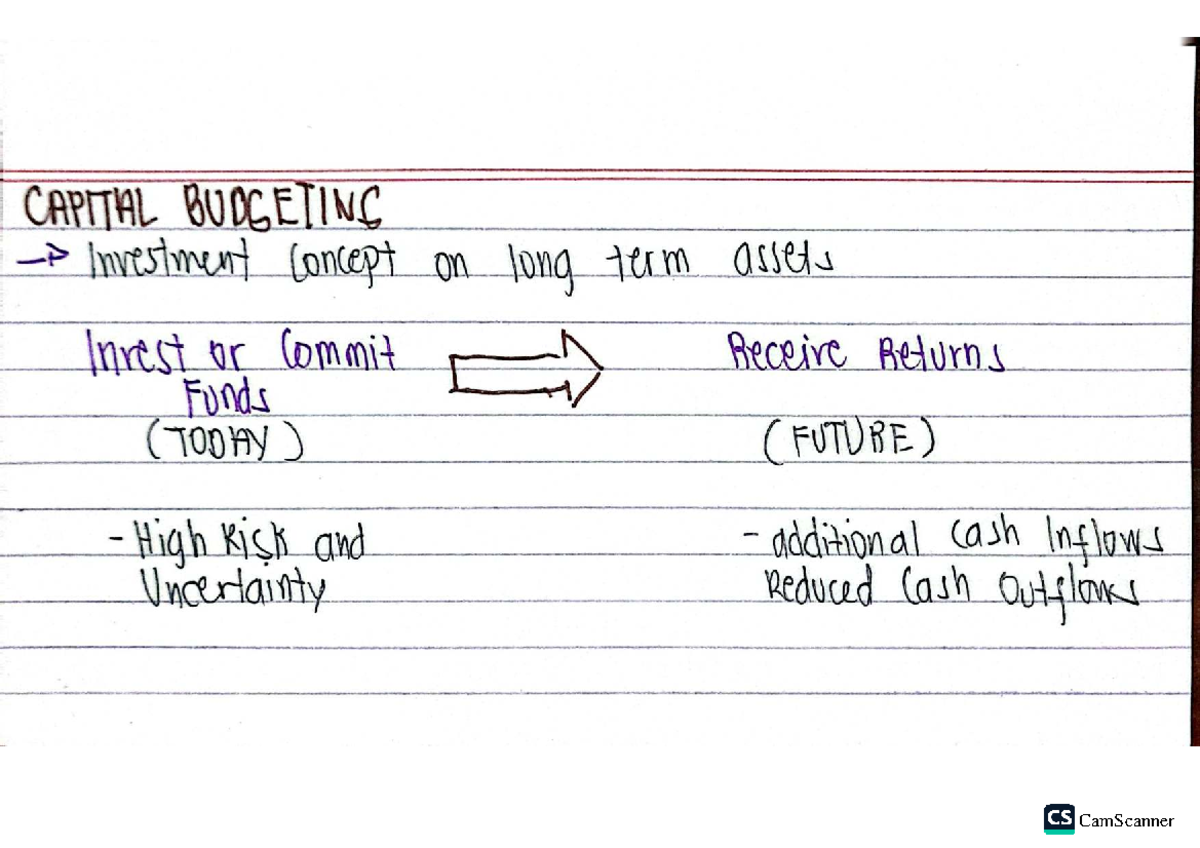 CAPITAL BUDGETING
→ Investment Concept on long term assets
Invest or Commit Receive Returns
Funds
(TODAY) (FUTURE)
- High Risk and - additional Cash Inflows
Uncertainty Reduced Cash Outflows
CS CamScanner